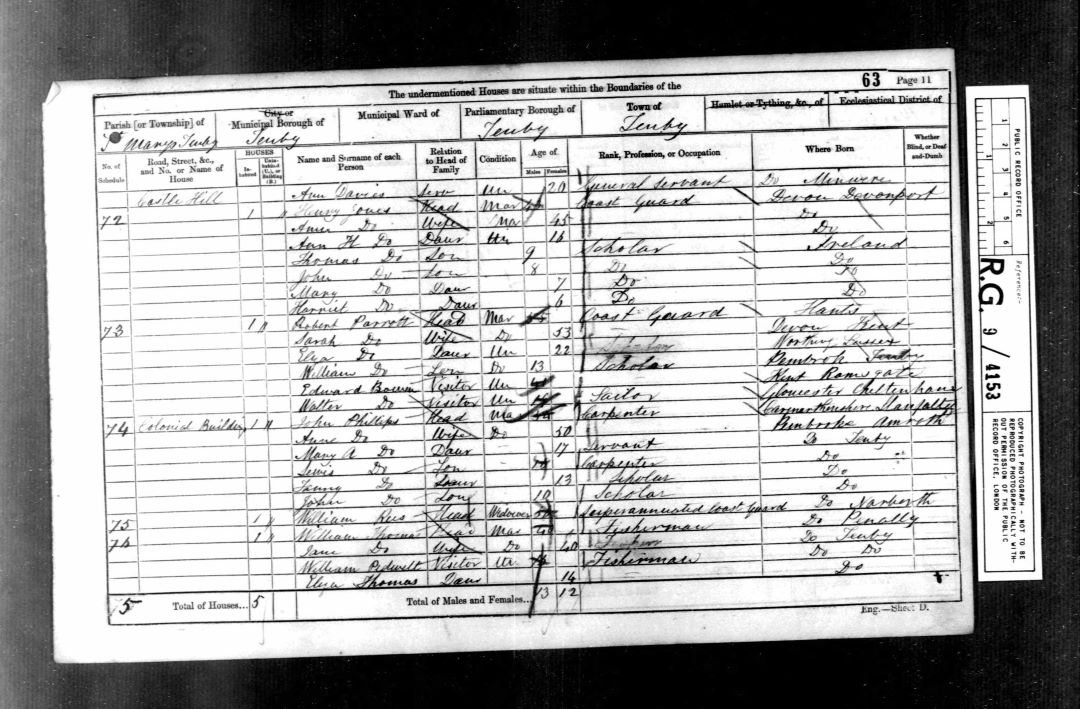 The undermentioned Houses are situate within the Boundaries of the 63 Page 11
Parish [or Township] of City or Municipal Borough of Municipal Ward of Parliamentary Borough of Town of Hamlet or Tything, &c., of Ecclesiastical District of
St Marys Tenby Tenby Tenby Tenby
No. of Schedule Road, Street, &c., and No. or Name of House HOUSES In-habited Unin-habited (U.), or Building (B.) Name and Surname of each Person Relation to Head of Family Condition Age of Males Females Rank, Profession, or Occupation Where Born Whether Blind, or Deaf-and-Dumb
Castle Hill Ann Davies Serv Un 20 General Servant Do Minwere
72 1 Henry Jones Head Mar Coast Guard Devon Devonport
Ann Do Wife Mar 45 Do
Ann H Do Daur Un 16 Do
Thomas Do Son 9 Scholar Ireland
John Do Son 8 Do Do
Mary Do Daur 7 Do Do
Harriet Do Daur 6 Do Do
73 1 Robert Parrott Head Mar Coast Guard Hants
Sarah Do Wife Do 53 Devon Kent
Eliza Do Daur Un 22 Worthing Sussex
William Do Son Do 13 Scholar Pembrok Tenby
Edward Visitor Un Kent Ramsgate
Walter Do Visitor Un Sailor Gloucester Cheltenham
74 Colonial Building 1 John Phillips Head Mar Carpenter Carmarthenshire
Anne Do Wife Do 50 Pembroke Amroth
Mary A Do Daur 17 Servant Do Tenby
Lewis Do Son Carpenter Do
Fanny Do Daur 13 Scholar Do
John Do Son 10 Scholar Do
75 1 William Rees Head Widower Superannuated Coast Guard Do Narberth
76 1 William Thomas Head Mar Fisherman Do Penally
Jane Do Wife Do 40 Do Tenby
William Visitor Un Fisherman Do Do
Eliza Thomas Daur 14 Do
75 Total of Houses... 5 Total of Males and Females... 13 12
Eng.—Sheet D.
PUBLIC RECORD OFFICE
1 2 3 4 5 6
Reference:-
R.G. 9 / 4153
COPYRIGHT PHOTOGRAPH - NOT TO BE REPRODUCED PHOTOGRAPHICALLY WITHOUT PERMISSION OF THE PUBLIC RECORD OFFICE, LONDON